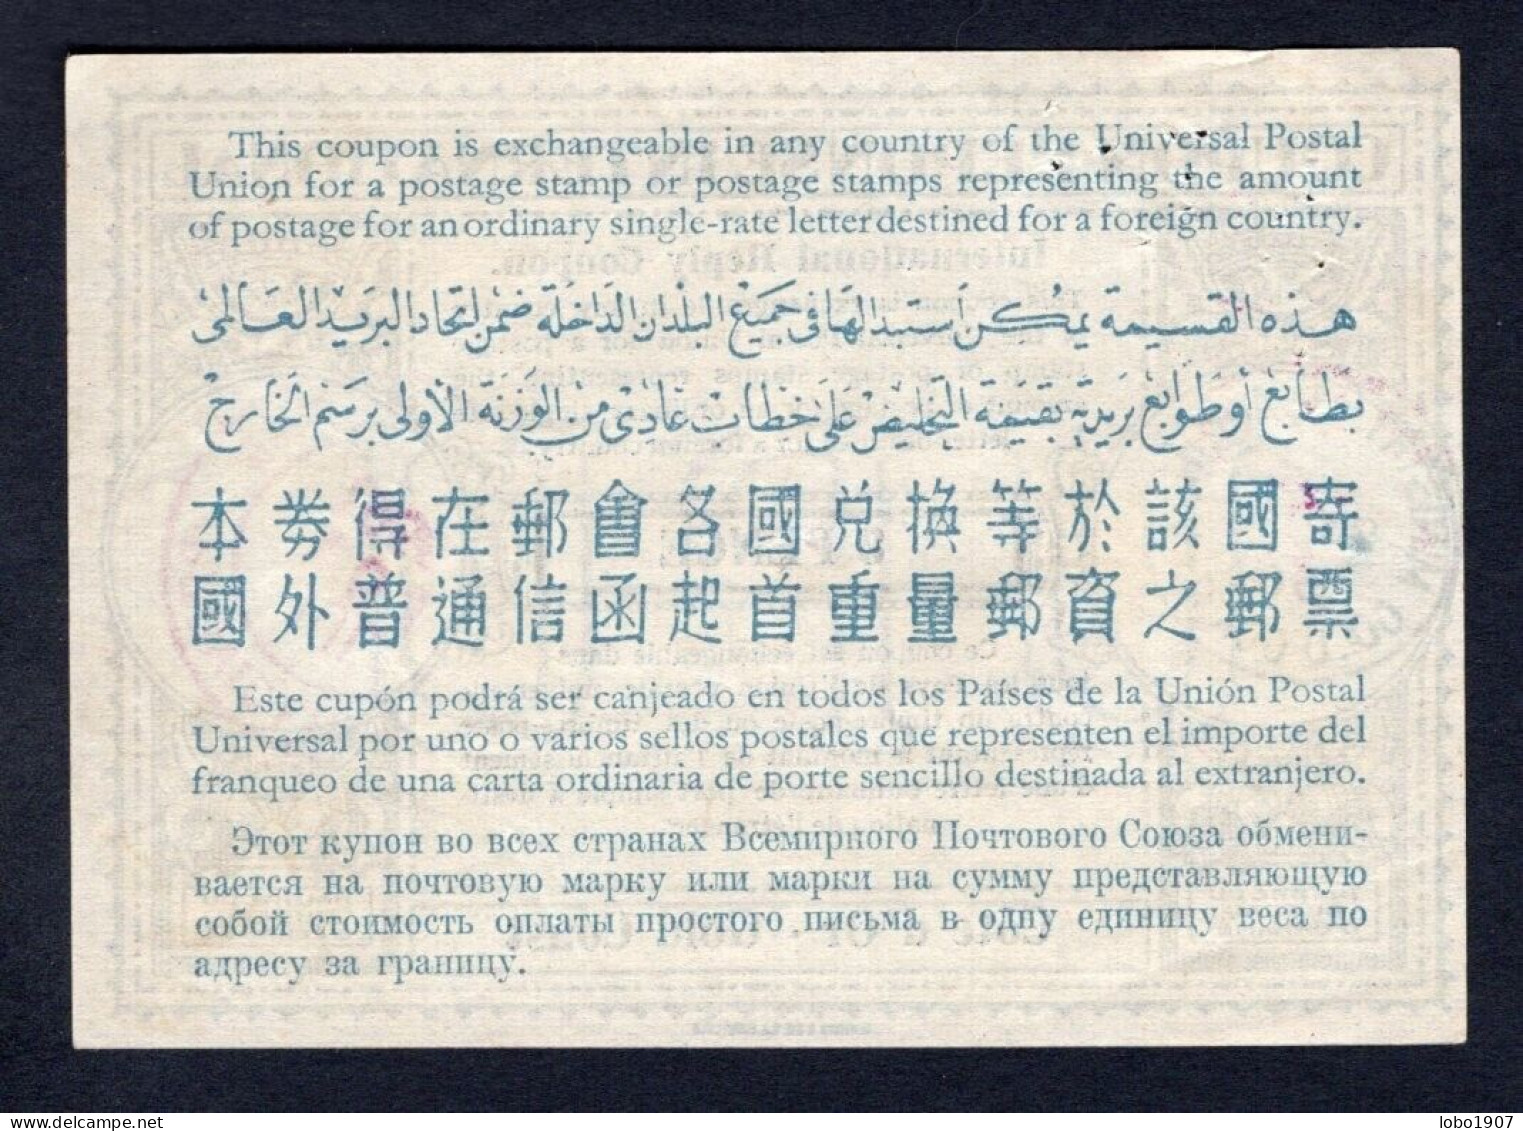 This coupon is exchangeable in any country of the Universal Postal
Union for a postage stamp or postage stamps representing the amount
of postage for an ordinary single-rate letter destined for a foreign country.
هذه القسيمة يمكن استبدالها في جميع البلدان الداخلة ضمن اتحاد البريد العالمى
بطابع أو طوابع بريدية بقيمة التخليص على خطاب عادى من الوزنة الأولى برسم الخارج
本券得在郵會各國兌換等於該國寄
國外普通信函起首重量郵資之郵票
Este cupón podrá ser canjeado en todos los Países de la Unión Postal
Universal por uno o varios sellos postales que representen el importe del
franqueo de una carta ordinaria de porte sencillo destinada al extranjero.
Этот купон во всех странах Всемирного Почтового Союза обмени-
вается на почтовую марку или марки на сумму представляющую
собой стоимость оплаты простого письма в одну единицу веса по
адресу за границу.
lobo1907